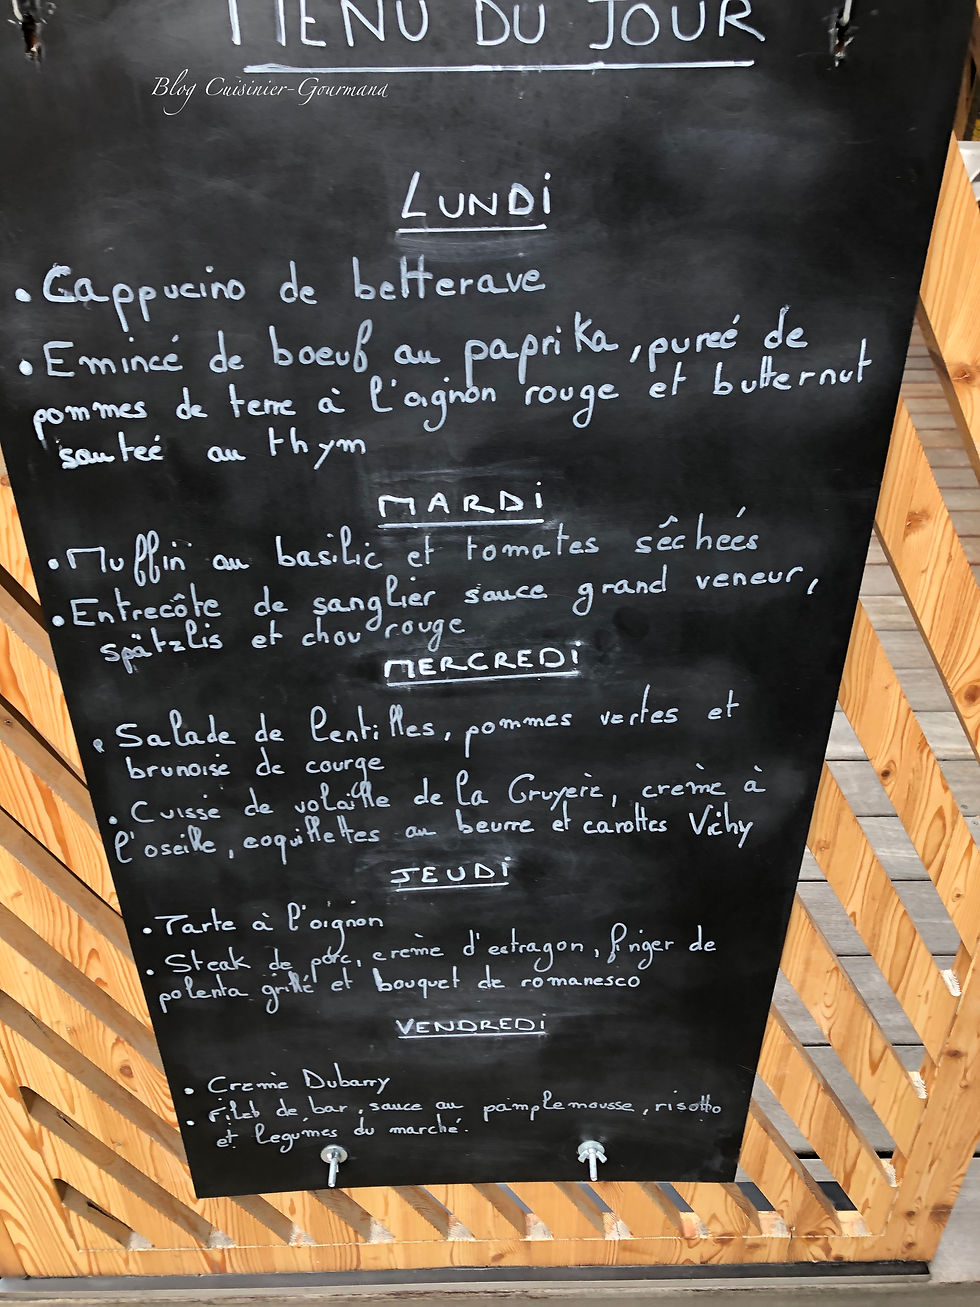 MENU DU JOUR
Blog Cuisinier-Gourmand
LUNDI
• Cappucino de betterave
• Emincé de boeuf au paprika, pureé de
pommes de terre à l'oignon rouge et butternut
sauteé au thym
MARDI
• Muffin au basilic et tomates sêchées
• Entrecôte de sanglier sauce grand veneur,
spätzlis et chou rouge
MERCREDI
• Salade de lentilles, pommes vertes et
brunoise de courge
• Cuisse de volaille de la Gruyère, crème à
l'oseille, coquillettes au beurre et carottes Vichy
JEUDI
• Tarte à l'oignon
• Steak de porc, crème d'estragon, finger de
polenta grillé et bouquet de romanesco
VENDREDI
• Crème Dubarry
• Filet de bar, sauce au pamplemousse, risotto
et légumes du marché.